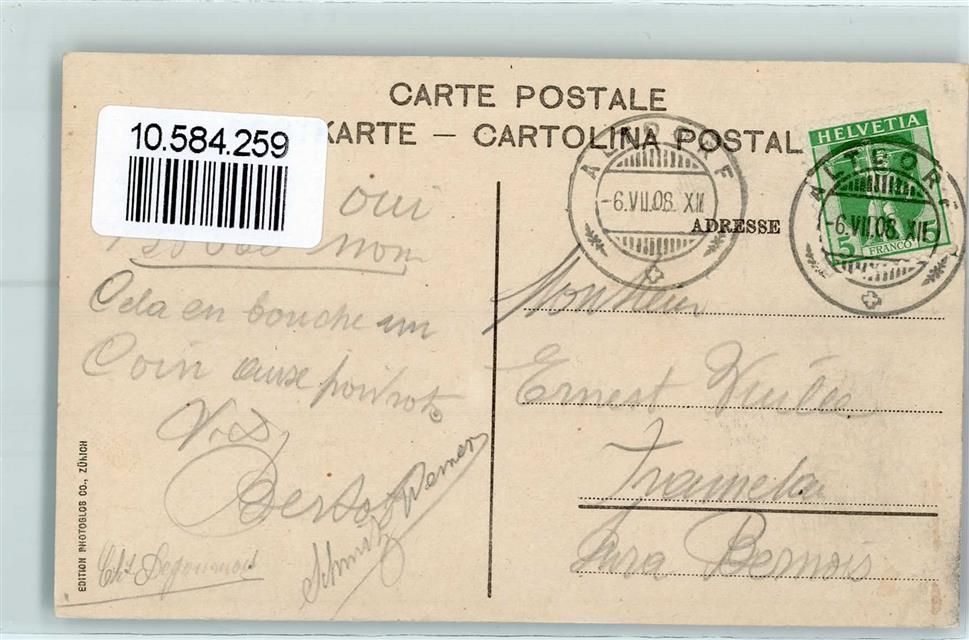 CARTE POSTALE
KARTE – CARTOLINA POSTAL
10.584.259
HELVETIA
5 FRANCO 5
ALTDORF
-6.VII.08. XII
ALTDORF
-6.VII.08. XII
ADRESSE
oui
non
Cela en bouche un
Coin
Monsieur
Ernest
Tramelan
Jura Bernois
Schmitz Werner
EDITION PHOTOGLOB CO., ZÜRICH